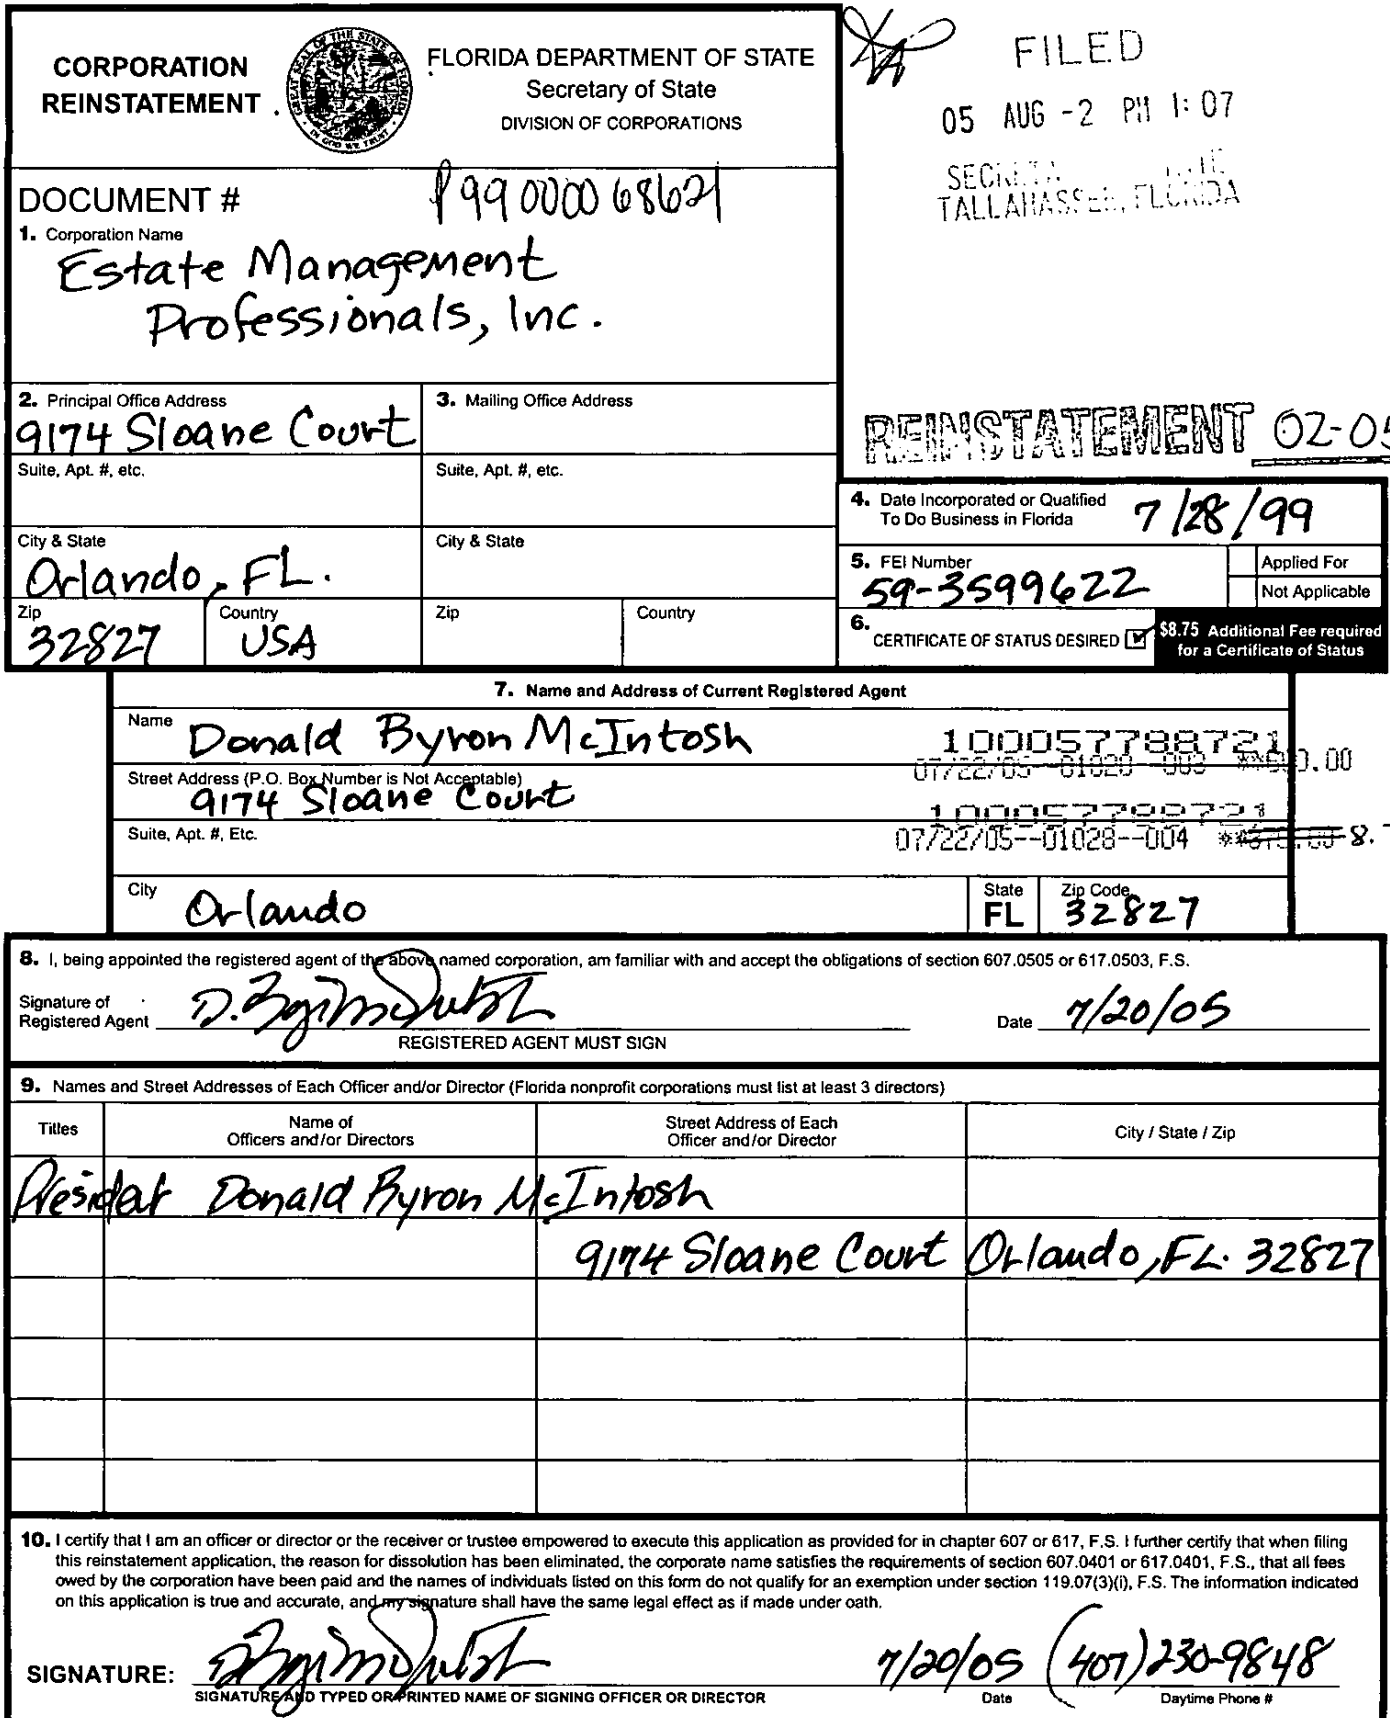 CORPORATION
REINSTATEMENT
GREAT SEAL OF THE STATE OF FLORIDA
IN GOD WE TRUST
FLORIDA DEPARTMENT OF STATE
Secretary of State
DIVISION OF CORPORATIONS
FILED
05 AUG -2 PM 1:07
TALLAHASSEE, FLORIDA
DOCUMENT # P99000068621
1. Corporation Name
Estate Management
Professionals, Inc.
REINSTATEMENT 02-05
2. Principal Office Address
9174 Sloane Court
3. Mailing Office Address
Suite, Apt. #, etc.
Suite, Apt. #, etc.
City & State
Orlando, FL.
City & State
Zip
32827
Country
USA
Zip
Country
4. Date Incorporated or Qualified
To Do Business in Florida
7/28/99
5. FEI Number
59-3599622
Applied For
Not Applicable
6. CERTIFICATE OF STATUS DESIRED
$8.75 Additional Fee required
for a Certificate of Status
7. Name and Address of Current Registered Agent
Name
Donald Byron McIntosh
100057788721
Street Address (P.O. Box Number is Not Acceptable)
9174 Sloane Court
100057788721
Suite, Apt. #, Etc.
07/22/05--01028--004
8.
City
Orlando
State
FL
Zip Code
32827
8. I, being appointed the registered agent of the above named corporation, am familiar with and accept the obligations of section 607.0505 or 617.0503, F.S.
Signature of
Registered Agent
D. Byron McIntosh
Date 7/20/05
REGISTERED AGENT MUST SIGN
9. Names and Street Addresses of Each Officer and/or Director (Florida nonprofit corporations must list at least 3 directors)
Titles
Name of
Officers and/or Directors
Street Address of Each
Officer and/or Director
City / State / Zip
President Donald Byron McIntosh
9174 Sloane Court Orlando, FL. 32827
10. I certify that I am an officer or director or the receiver or trustee empowered to execute this application as provided for in chapter 607 or 617, F.S. I further certify that when filing
this reinstatement application, the reason for dissolution has been eliminated, the corporate name satisfies the requirements of section 607.0401 or 617.0401, F.S., that all fees
owed by the corporation have been paid and the names of individuals listed on this form do not qualify for an exemption under section 119.07(3)(i), F.S. The information indicated
on this application is true and accurate, and my signature shall have the same legal effect as if made under oath.
SIGNATURE: D Byron McIntosh 7/20/05 (407)230-9848
SIGNATURE AND TYPED OR PRINTED NAME OF SIGNING OFFICER OR DIRECTOR
Date
Daytime Phone #